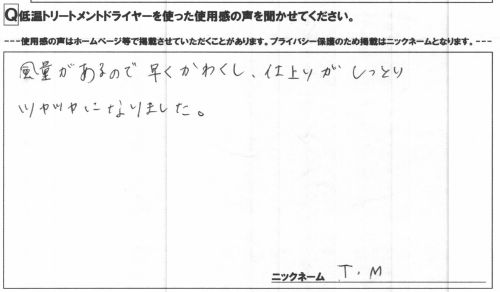 Q低温トリートメントドライヤーを使った使用感の声を聞かせてください。
---使用感の声はホームページ等で掲載させていただくことがあります。プライバシー保護のため掲載はニックネームとなります。---
風量があるので早くかわくし、仕上りがしっとり
ツヤツヤになりました。
ニックネーム T.M